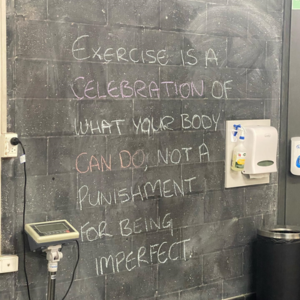 EXERCISE IS A
CELEBRATION OF
WHAT YOUR BODY
CAN DO, NOT A
PUNISHMENT
FOR BEING
IMPERFECT.